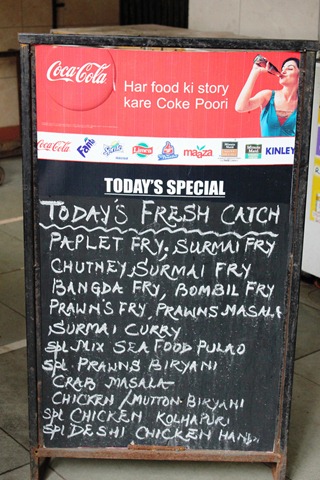 Coca-Cola
Har food ki story
kare Coke Poori
Coca-Cola Fanta Sprite Limca maaza Minute Maid Minute Maid KINLEY
TODAY'S SPECIAL
TODAY'S FRESH CATCH
PAPLET FRY, SURMAI FRY
CHUTNEY SURMAI FRY
BANGDA FRY, BOMBIL FRY
PRAWN'S FRY, PRAWNS MASALA
SURMAI CURRY
SPL MIX SEA FOOD PULAO
SPL PRAWNS BIRYANI
CRAB MASALA
CHICKEN / MUTTON BIRYANI
SPL CHICKEN KOLHAPURI
SPL DESHI CHICKEN HANDI